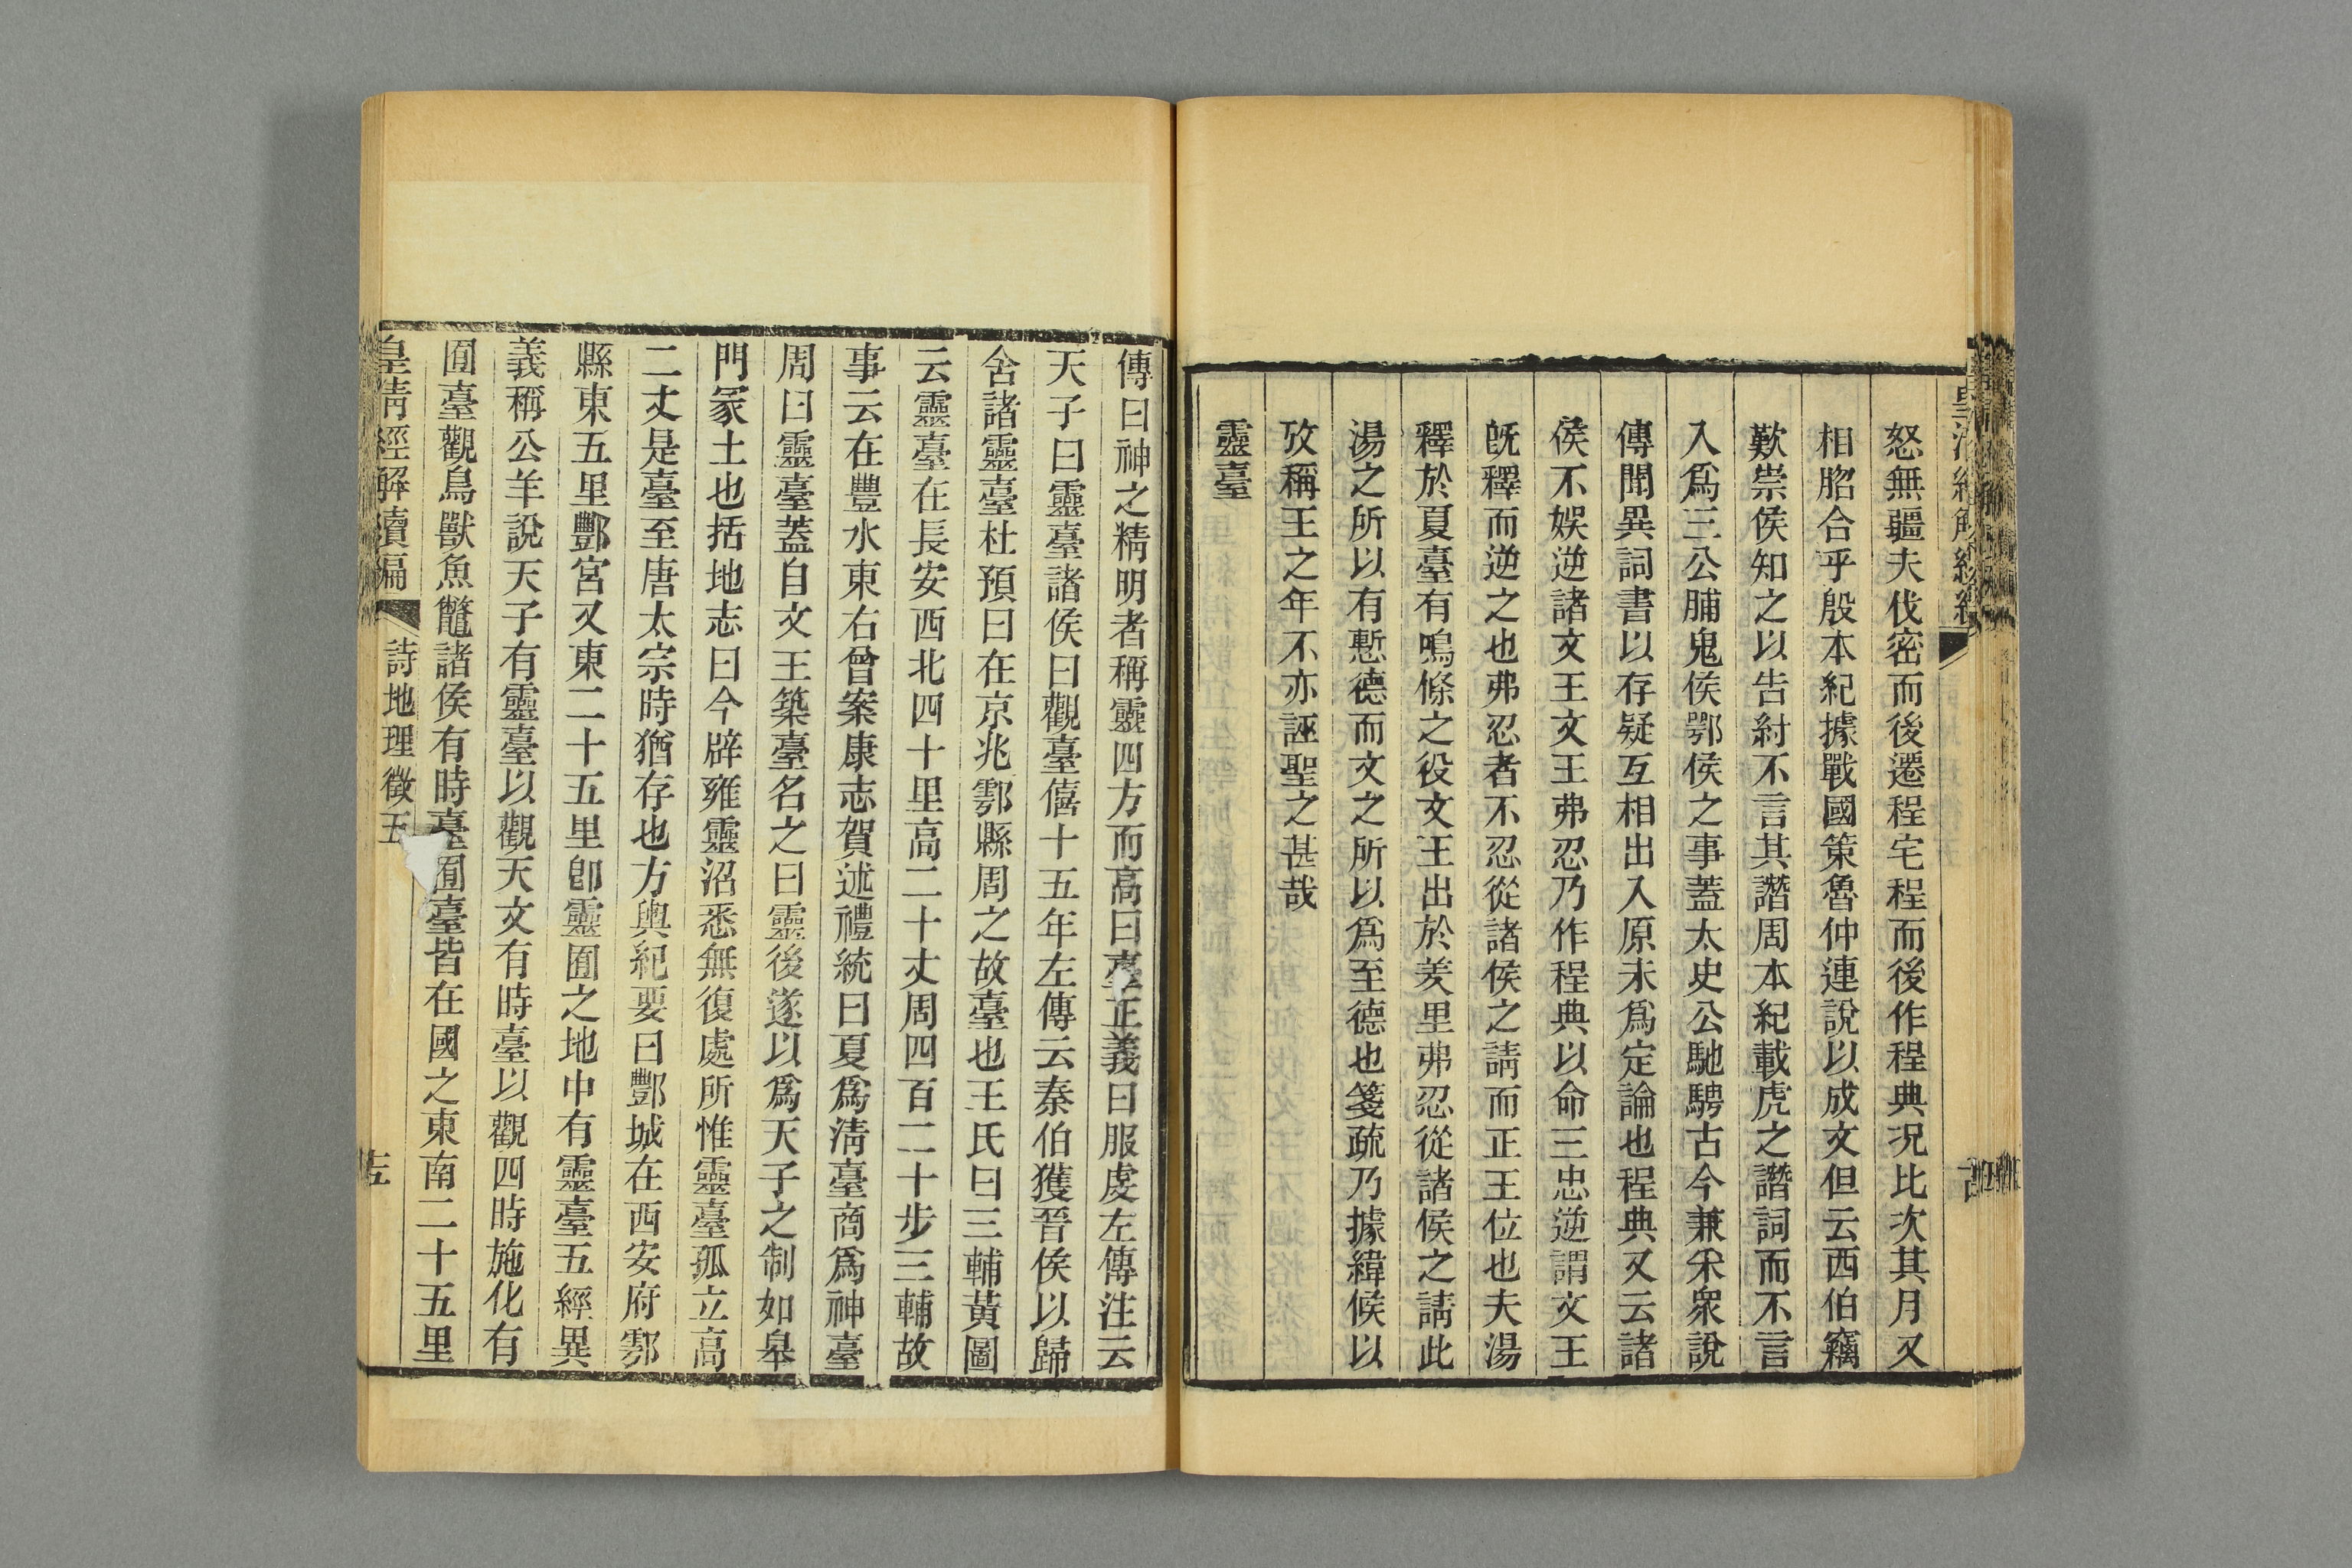 怒無疆夫伐密而後遷程宅程而後作程典況比次其月又
相脗合乎殷本紀據戰國策魯仲連說以成文但云西伯竊
歎崇侯知之以告紂不言其譖周本紀載虎之譖詞而不言
入爲三公脯鬼侯鄂侯之事蓋太史公馳騁古今兼采衆說
傳聞異詞書以存疑互相出入原未爲定論也程典又云諸
侯不娛逆諸文王文王弗忍乃作程典以命三忠逆謂文王
旣釋而逆之也弗忍者不忍從諸侯之請而正王位也夫湯
釋於夏臺有鳴條之役文王出於羑里弗忍從諸侯之請此
湯之所以有慙德而文之所以爲至德也箋疏乃據緯候以
攷稱王之年不亦誣聖之甚哉
靈臺
傳曰神之精明者稱靈四方而高曰臺正義曰服虔左傳注云
天子曰靈臺諸侯曰觀臺僖十五年左傳云秦伯獲晉侯以歸
舍諸靈臺杜預曰在京兆鄠縣周之故臺也王氏曰三輔黃圖
云靈臺在長安西北四十里高二十丈周四百二十步三輔故
事云在豐水東右曾案康志賀述禮統曰夏爲淸臺商爲神臺
周曰靈臺蓋自文王築臺名之曰靈後遂以爲天子之制如皋
門冢土也括地志曰今辟雍靈沼悉無復處所惟靈臺孤立高
二丈是臺至唐太宗時猶存也方輿紀要曰酆城在西安府鄠
縣東五里酆宮又東二十五里卽靈囿之地中有靈臺五經異
義稱公羊說天子有靈臺以觀天文有時臺以觀四時施化有
囿臺觀鳥獸魚鼈諸侯有時臺囿臺皆在國之東南二十五里
皇淸經解續編
詩地理徵五
十五